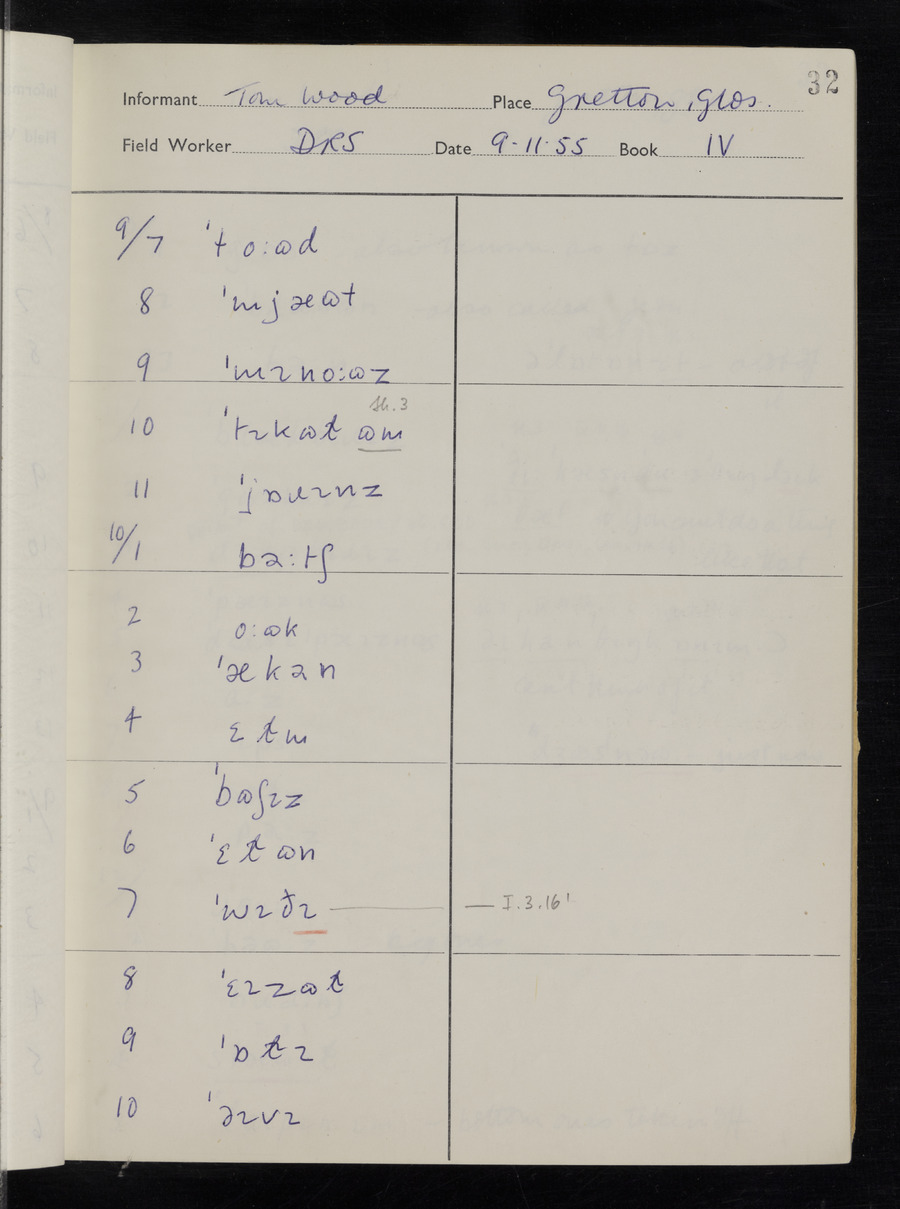 32
Informant Tom Wood Place Gretton, Glos.
Field Worker DRS Date 9·11·55 Book IV
9/7 ˈtoːɷd
8 ˈmjæɷt
9 ˈmɪnoːɷz
Sh.3
10 ˈtɪkɷɫ ɷm
11
10/1 bəːtʃ
2 oːɷk
3 ˈækən
4 ɛɫm
5 ˈbɷʃɪz
6 ˈɛɫɷn
7 ˈwɪðɪ — — I.3.16'
8 ˈɛɪzɷɫ
9 ˈɒɫɪ
10 ˈəɪvɪ